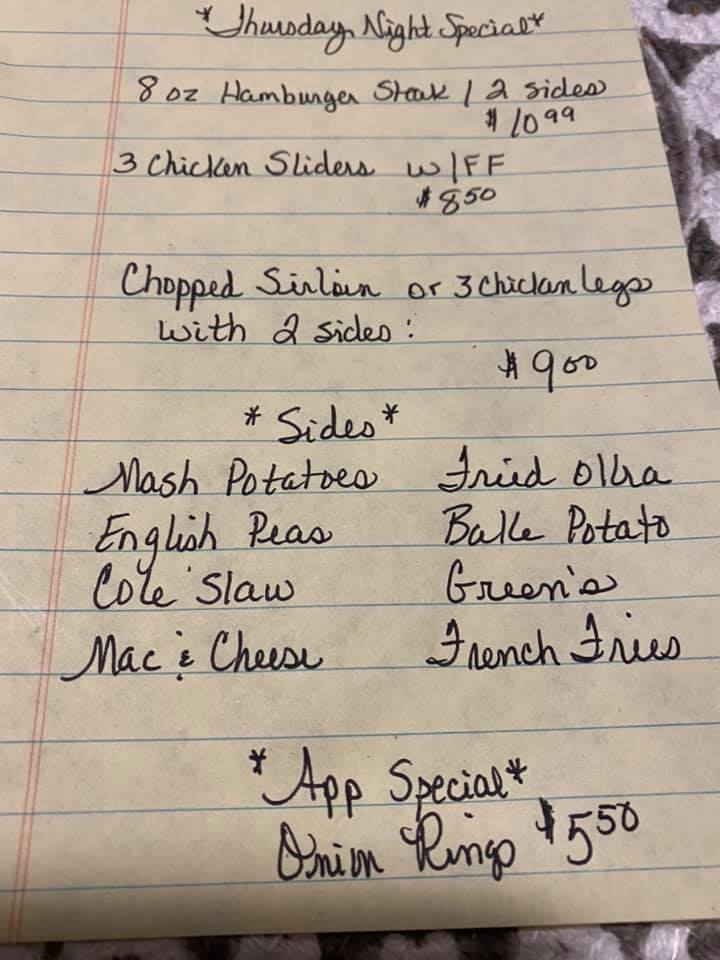 *Thursday Night Special*
8 oz Hamburger Steak / 2 sides
$10 99
3 Chicken Sliders w/FF
$8 50
Chopped Sirloin or 3 Chicken legs
with 2 sides:
$9 00
*Sides*
Mash Potatoes Fried Okra
English Peas Bake Potato
Cole Slaw Green's
Mac & Cheese French Fries
*App Special*
Onion Rings $5 50